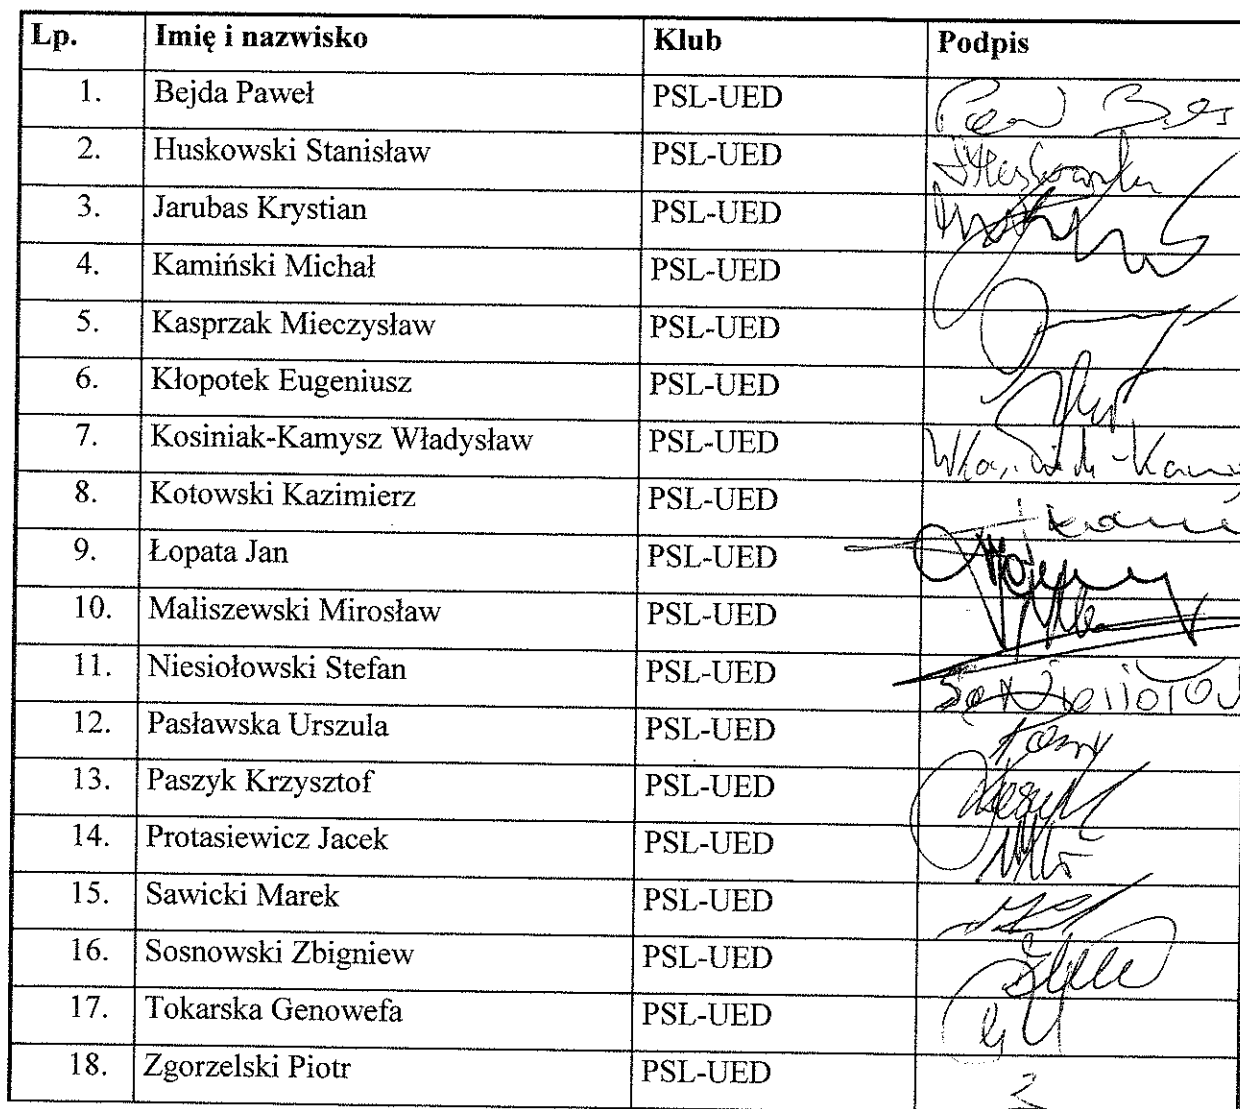 Lp. Imię i nazwisko Klub Podpis
1. Bejda Paweł PSL-UED
2. Huskowski Stanisław PSL-UED
3. Jarubas Krystian PSL-UED
4. Kamiński Michał PSL-UED
5. Kasprzak Mieczysław PSL-UED
6. Kłopotek Eugeniusz PSL-UED
7. Kosiniak-Kamysz Władysław PSL-UED
8. Kotowski Kazimierz PSL-UED
9. Łopata Jan PSL-UED
10. Maliszewski Mirosław PSL-UED
11. Niesiołowski Stefan PSL-UED
12. Pasławska Urszula PSL-UED
13. Paszyk Krzysztof PSL-UED
14. Protasiewicz Jacek PSL-UED
15. Sawicki Marek PSL-UED
16. Sosnowski Zbigniew PSL-UED
17. Tokarska Genowefa PSL-UED
18. Zgorzelski Piotr PSL-UED